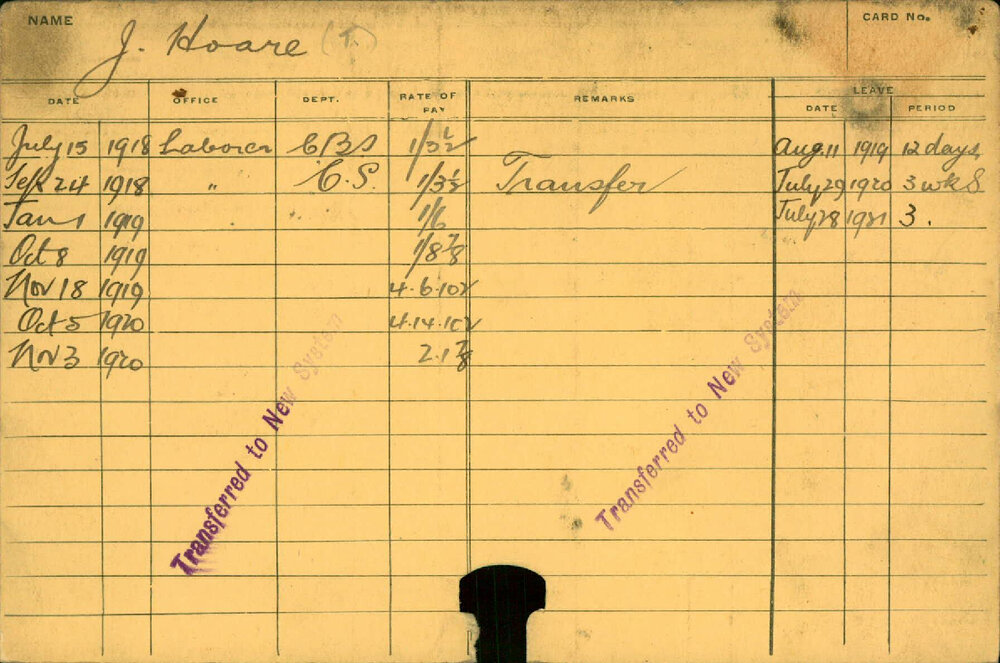 NAME J. Hoare (T.) CARD No.
DATE OFFICE DEPT. RATE OF PAY REMARKS LEAVE
DATE PERIOD
July 15 1918 Laborer CBS 1/3½ Aug. 11 1919 12 days
Sept 24 1918 " C.S. 1/3½ Transfer July 29 1920 3 wks
Jan 1 1919 1/6 July 28 1921 3.
Oct 8 1919 1/8⅞
Nov 18 1919 4.6.10½
Oct 5 1920 4.14.10½
Nov 3 1920 2.1⅞
Transferred to New System
Transferred to New System